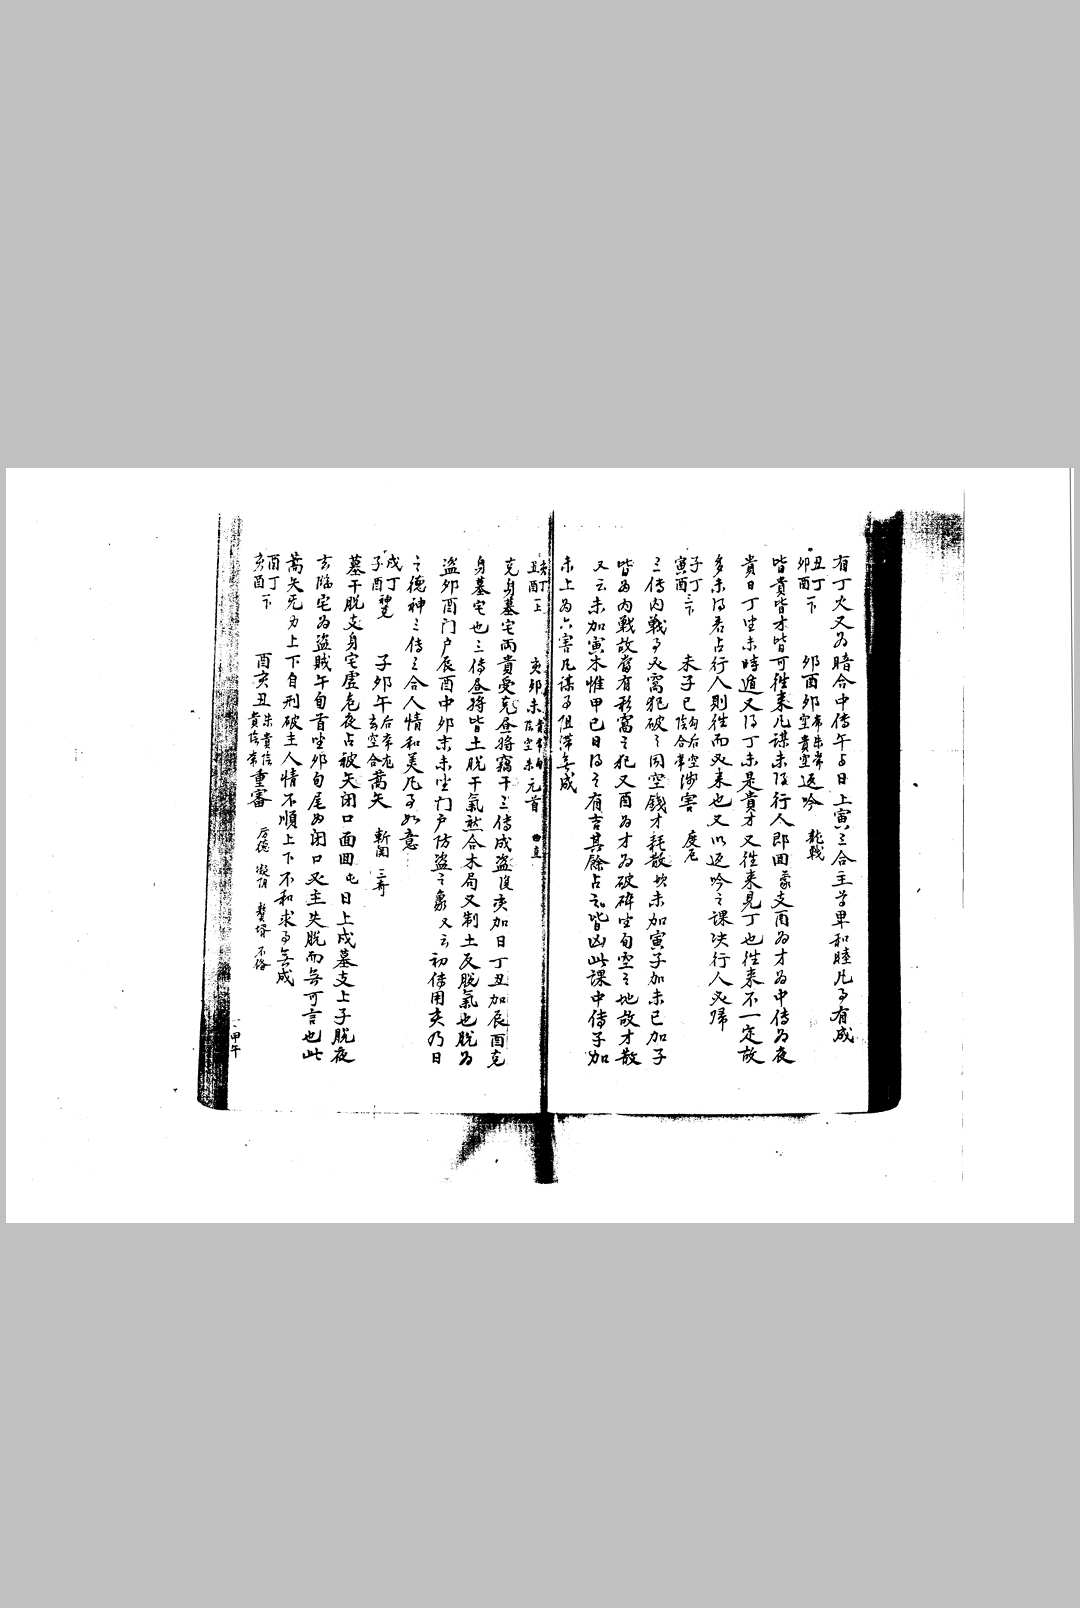 有丁火又为暗合中傳午与日上寅三合主尊卑和睦凡事有成
丑丁 卯酉 下 卯酉卯 常朱常 空貴空 返吟 龍戰
皆貴皆才皆可往来凡謀未得行人即回蒙支酉为才为中傳为夜
貴日丁坐未時遁又得丁未是貴才又往来見丁也往来不一定故
多未得若占行人則往而又来也又以返吟之課决行人必歸
子丁 寅酉 下 未子巳 勾后空 陰合常 涉害 度厄
三傳内戰事必窩犯破之因空錢才耗散坎未加寅子加未巳加子
皆为内戰故當有移窩之犯又酉为才为破碎坐旬空之地故才散
又云未加寅木惟甲巳日得之有吉其餘占之皆凶此課中傳子加
未上为六害凡謀事阻滯無成
亥丁 丑酉 上 亥卯未 元首
克身墓宅兩貴受克昼将竊干三傳成盜没亥加日丁丑加辰酉克
身墓宅也三傳昼将皆土脱干氣然合木局又制土反脱氣也脱为
盜卯酉门户辰酉中卯末未坐门户防盜之象又云初傳用亥乃日
之德神三傳三合人情和美凡事如意
戌丁 子酉 神克 子卯午 后常龙 玄空合 蒿矢 斬関 三奇
墓干脱支身宅虚危夜占被矢闭口面回屯日上戌墓支上子脱夜
玄临宅为盜賊午旬首坐卯旬尾为闭口又主失脱而無可言也此
蒿矢无力上下自刑破主人情不順上下不和求事無成
酉丁 亥酉 下 酉亥丑 朱貴陰 貴陰常 重審 厉德 凝阴 贅壻 不俻
甲午